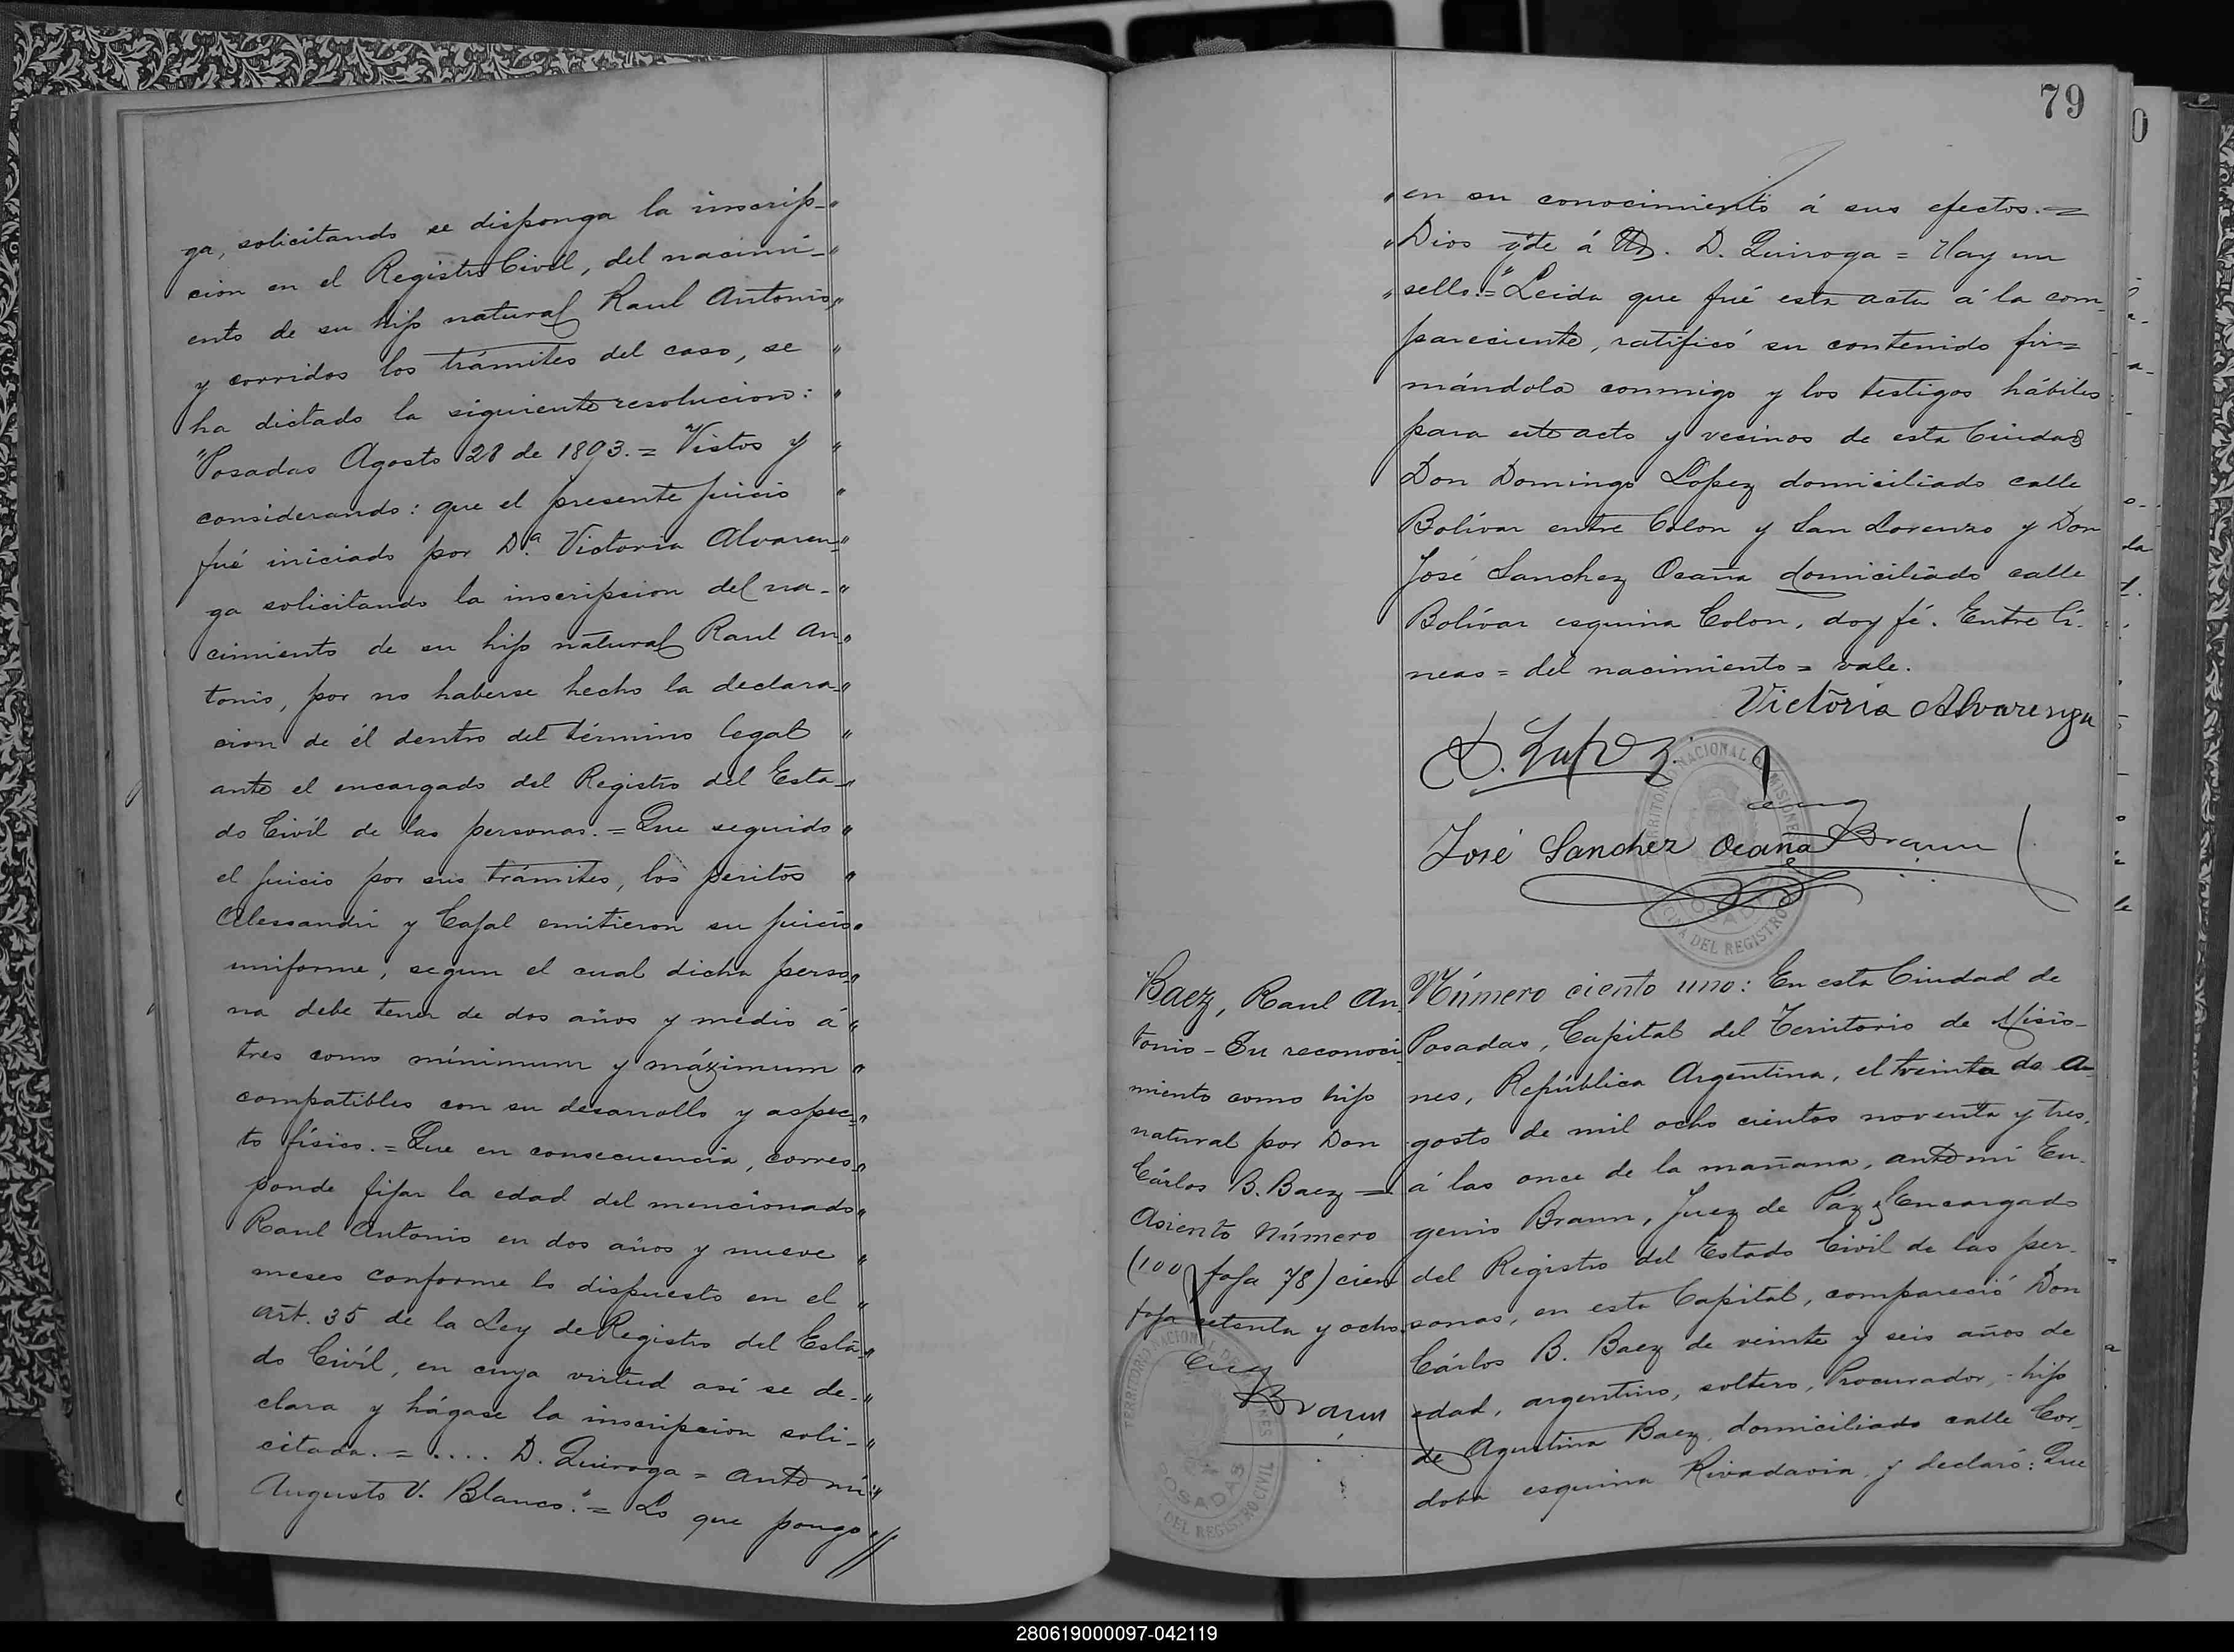 ga, solicitando se disponga la inscrip-"
cion en el Registro Civil, del nacimi-"
ento de su hijo natural Raul Antonio,"
y corridos los trámites del caso, se "
ha dictado la siguiente resolucion: "
"Posadas Agosto 28 de 1893. = Vistos y "
considerando: que el presente juicio "
fué iniciado por D.ª Victoria Alvaren-"
ga solicitando la inscripcion del na-"
cimiento de su hijo natural Raul An-"
tonio, por no haberse hecho la declara-"
cion de él dentro del término legal "
ante el encargado del Registro del Esta-"
do Civil de las personas. = Que seguido "
el juicio por sus trámites, los peritos "
Alessandri y Cajal emitieron su juicio "
uniforme, segun el cual dicha perso-"
na debe tener de dos años y medio á "
tres como mínimum y máximum "
compatibles con su desarrollo y aspec-"
to físico. = Que en consecuencia, corres-"
ponde fijar la edad del mencionado "
Raul Antonio en dos años y nueve "
meses conforme lo dispuesto en el "
art. 35 de la Ley de Registro del Esta-"
do Civil, en cuya virtud así se de-"
clara y hágase la inscripcion soli-"
citada. = .... D. Quiroga = Ante mí "
Augusto V. Blanco." = Lo que pongo "//
79
"en su conocimiento á sus efectos. =
"Dios gde á Ud. D. Quiroga = Hay un
"sello. =" Leida que fué esta acta á la com-
pareciente, ratificó su contenido fir=
mándola conmigo y los testigos hábiles
para este acto y vecinos de esta Ciudad
Don Domingo Lopez domiciliado calle
Bolívar entre Colon y San Lorenzo y Don
José Sanchez Ocaña domiciliado calle
Bolívar esquina Colon, doy fé. Entre lí-
neas = del nacimiento = vale.
Victoria Alvarenga
D. Lopez
Eug
Braun
José Sanchez Ocaña
TERRITORIO NACIONAL DE MISIONES
POSADAS
OFICINA DEL REGISTRO CIVIL
Baez, Raul An-
tonio - Su reconoci-
miento como hijo
natural por Don
Cárlos B. Baez =
Asiento Número
(100 foja 78) cien
foja setenta y ocho.
Eug
Braun
TERRITORIO NACIONAL DE MISIONES
POSADAS
DEL REGISTRO CIVIL
Número ciento uno: En esta Ciudad de
Posadas, Capital del Territorio de Misio-
nes, República Argentina, el treinta de A-
gosto de mil ocho cientos noventa y tres,
á las once de la mañana, ante mí Eu-
genio Braun, Juez de Páz y Encargado
del Registro del Estado Civil de las per-
sonas, en esta Capital, compareció Don
Cárlos B. Baez de veinte y seis años de
edad, argentino, soltero, Procurador, - hijo
de Agustina Baez, domiciliado calle Cor-
doba esquina Rivadavia, y declaró: Que
280619000097-042119